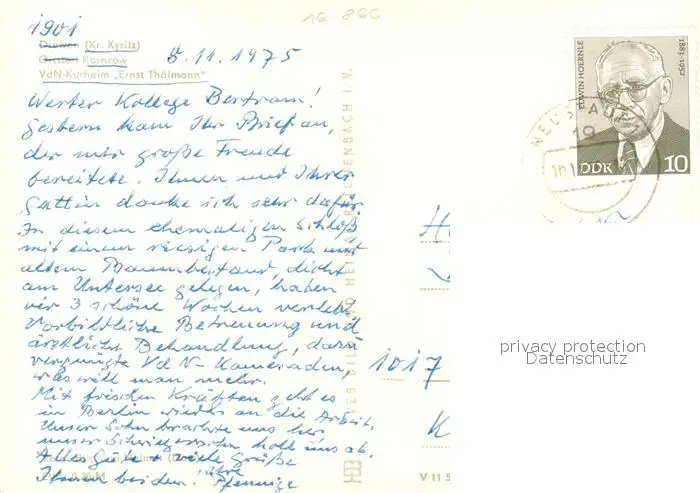 16 866
1901
Drewen (Kr. Kyritz)
Ortsteil Karnzow
VdN-Kurheim „Ernst Thälmann"
8.11.1975
Werter Kollege Bertram!
Gestern kam Ihr Brief an,
der mir große Freude
bereitete. Ihnen und Ihrer
Gattin danke ich sehr dafür.
In diesem ehemaligen Schloß
mit einem riesigen Park und
altem Baumbestand, dicht
am Untersee gelegen, haben
wir 3 schöne Wochen verlebt.
Vorbildliche Betreuung und
ärztliche Behandlung, dazu
vergnügte VdN-Kameraden,
was will man mehr.
Mit frischen Kräften geht es
in Berlin wieder an die Arbeit.
Unser Sohn brachte uns her
unser Schwiegersohn holt uns ab.
Alles Gute + viele Grüße
Ihnen beiden! Ihre
Pfennigs
EDWIN HOERNLE
1883-1952
DDR 10
NEUSTADT
19
1017
K
V 11 5
privacy protection
Datenschutz